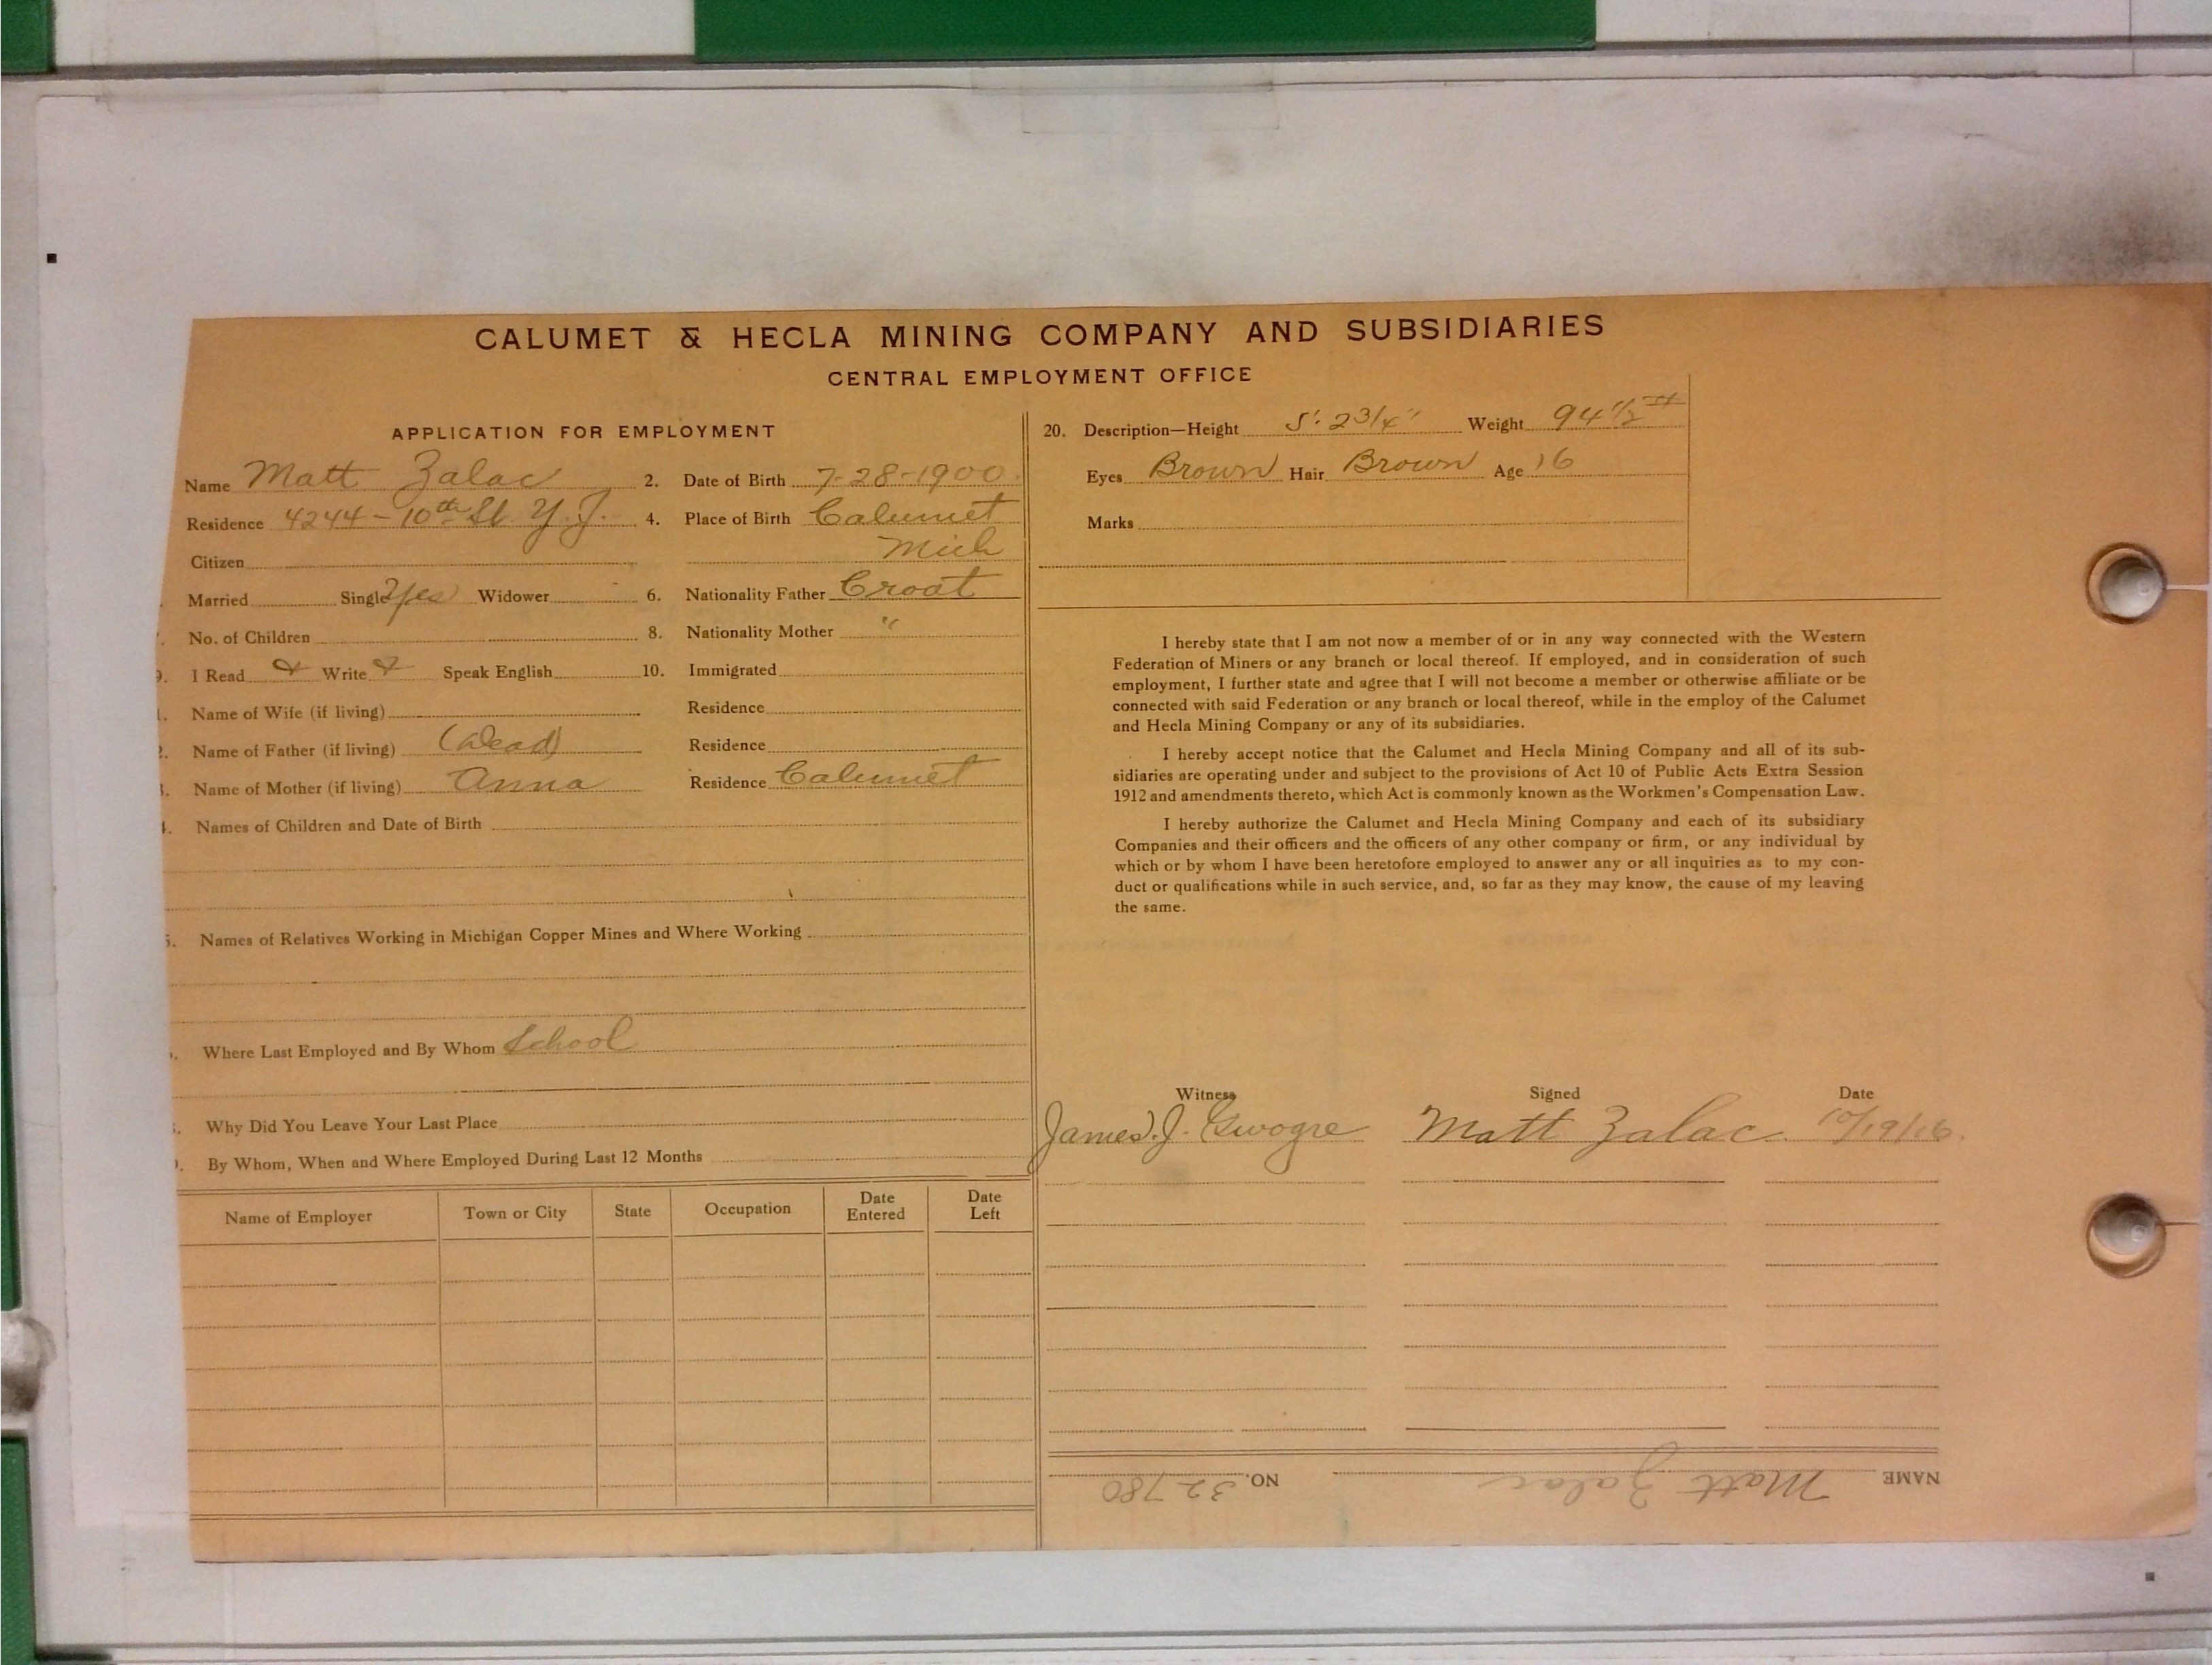 CALUMET & HECLA MINING COMPANY AND SUBSIDIARIES
CENTRAL EMPLOYMENT OFFICE
APPLICATION FOR EMPLOYMENT
Name Matt Zalac 2. Date of Birth 7-28-1900
Residence 4244 - 10th St. Y. J. 4. Place of Birth Calumet
Citizen Mich
Married Single Yes Widower 6. Nationality Father Croat
No. of Children 8. Nationality Mother "
9. I Read & Write & Speak English 10. Immigrated
Name of Wife (if living) Residence
Name of Father (if living) (Dead) Residence
Name of Mother (if living) Anna Residence Calumet
Names of Children and Date of Birth
Names of Relatives Working in Michigan Copper Mines and Where Working
Where Last Employed and By Whom School
Why Did You Leave Your Last Place
By Whom, When and Where Employed During Last 12 Months
Name of Employer Town or City State Occupation Date Entered Date Left
20. Description—Height 5' 2 3/4" Weight 94 1/2 #
Eyes Brown Hair Brown Age 16
Marks
I hereby state that I am not now a member of or in any way connected with the Western
Federation of Miners or any branch or local thereof. If employed, and in consideration of such
employment, I further state and agree that I will not become a member or otherwise affiliate or be
connected with said Federation or any branch or local thereof, while in the employ of the Calumet
and Hecla Mining Company or any of its subsidiaries.
I hereby accept notice that the Calumet and Hecla Mining Company and all of its sub-
sidiaries are operating under and subject to the provisions of Act 10 of Public Acts Extra Session
1912 and amendments thereto, which Act is commonly known as the Workmen's Compensation Law.
I hereby authorize the Calumet and Hecla Mining Company and each of its subsidiary
Companies and their officers and the officers of any other company or firm, or any individual by
which or by whom I have been heretofore employed to answer any or all inquiries as to my con-
duct or qualifications while in such service, and, so far as they may know, the cause of my leaving
the same.
Witness Signed Date
James J. Matt Zalac 10/19/16.
NAME Matt Zalac NO. 32780